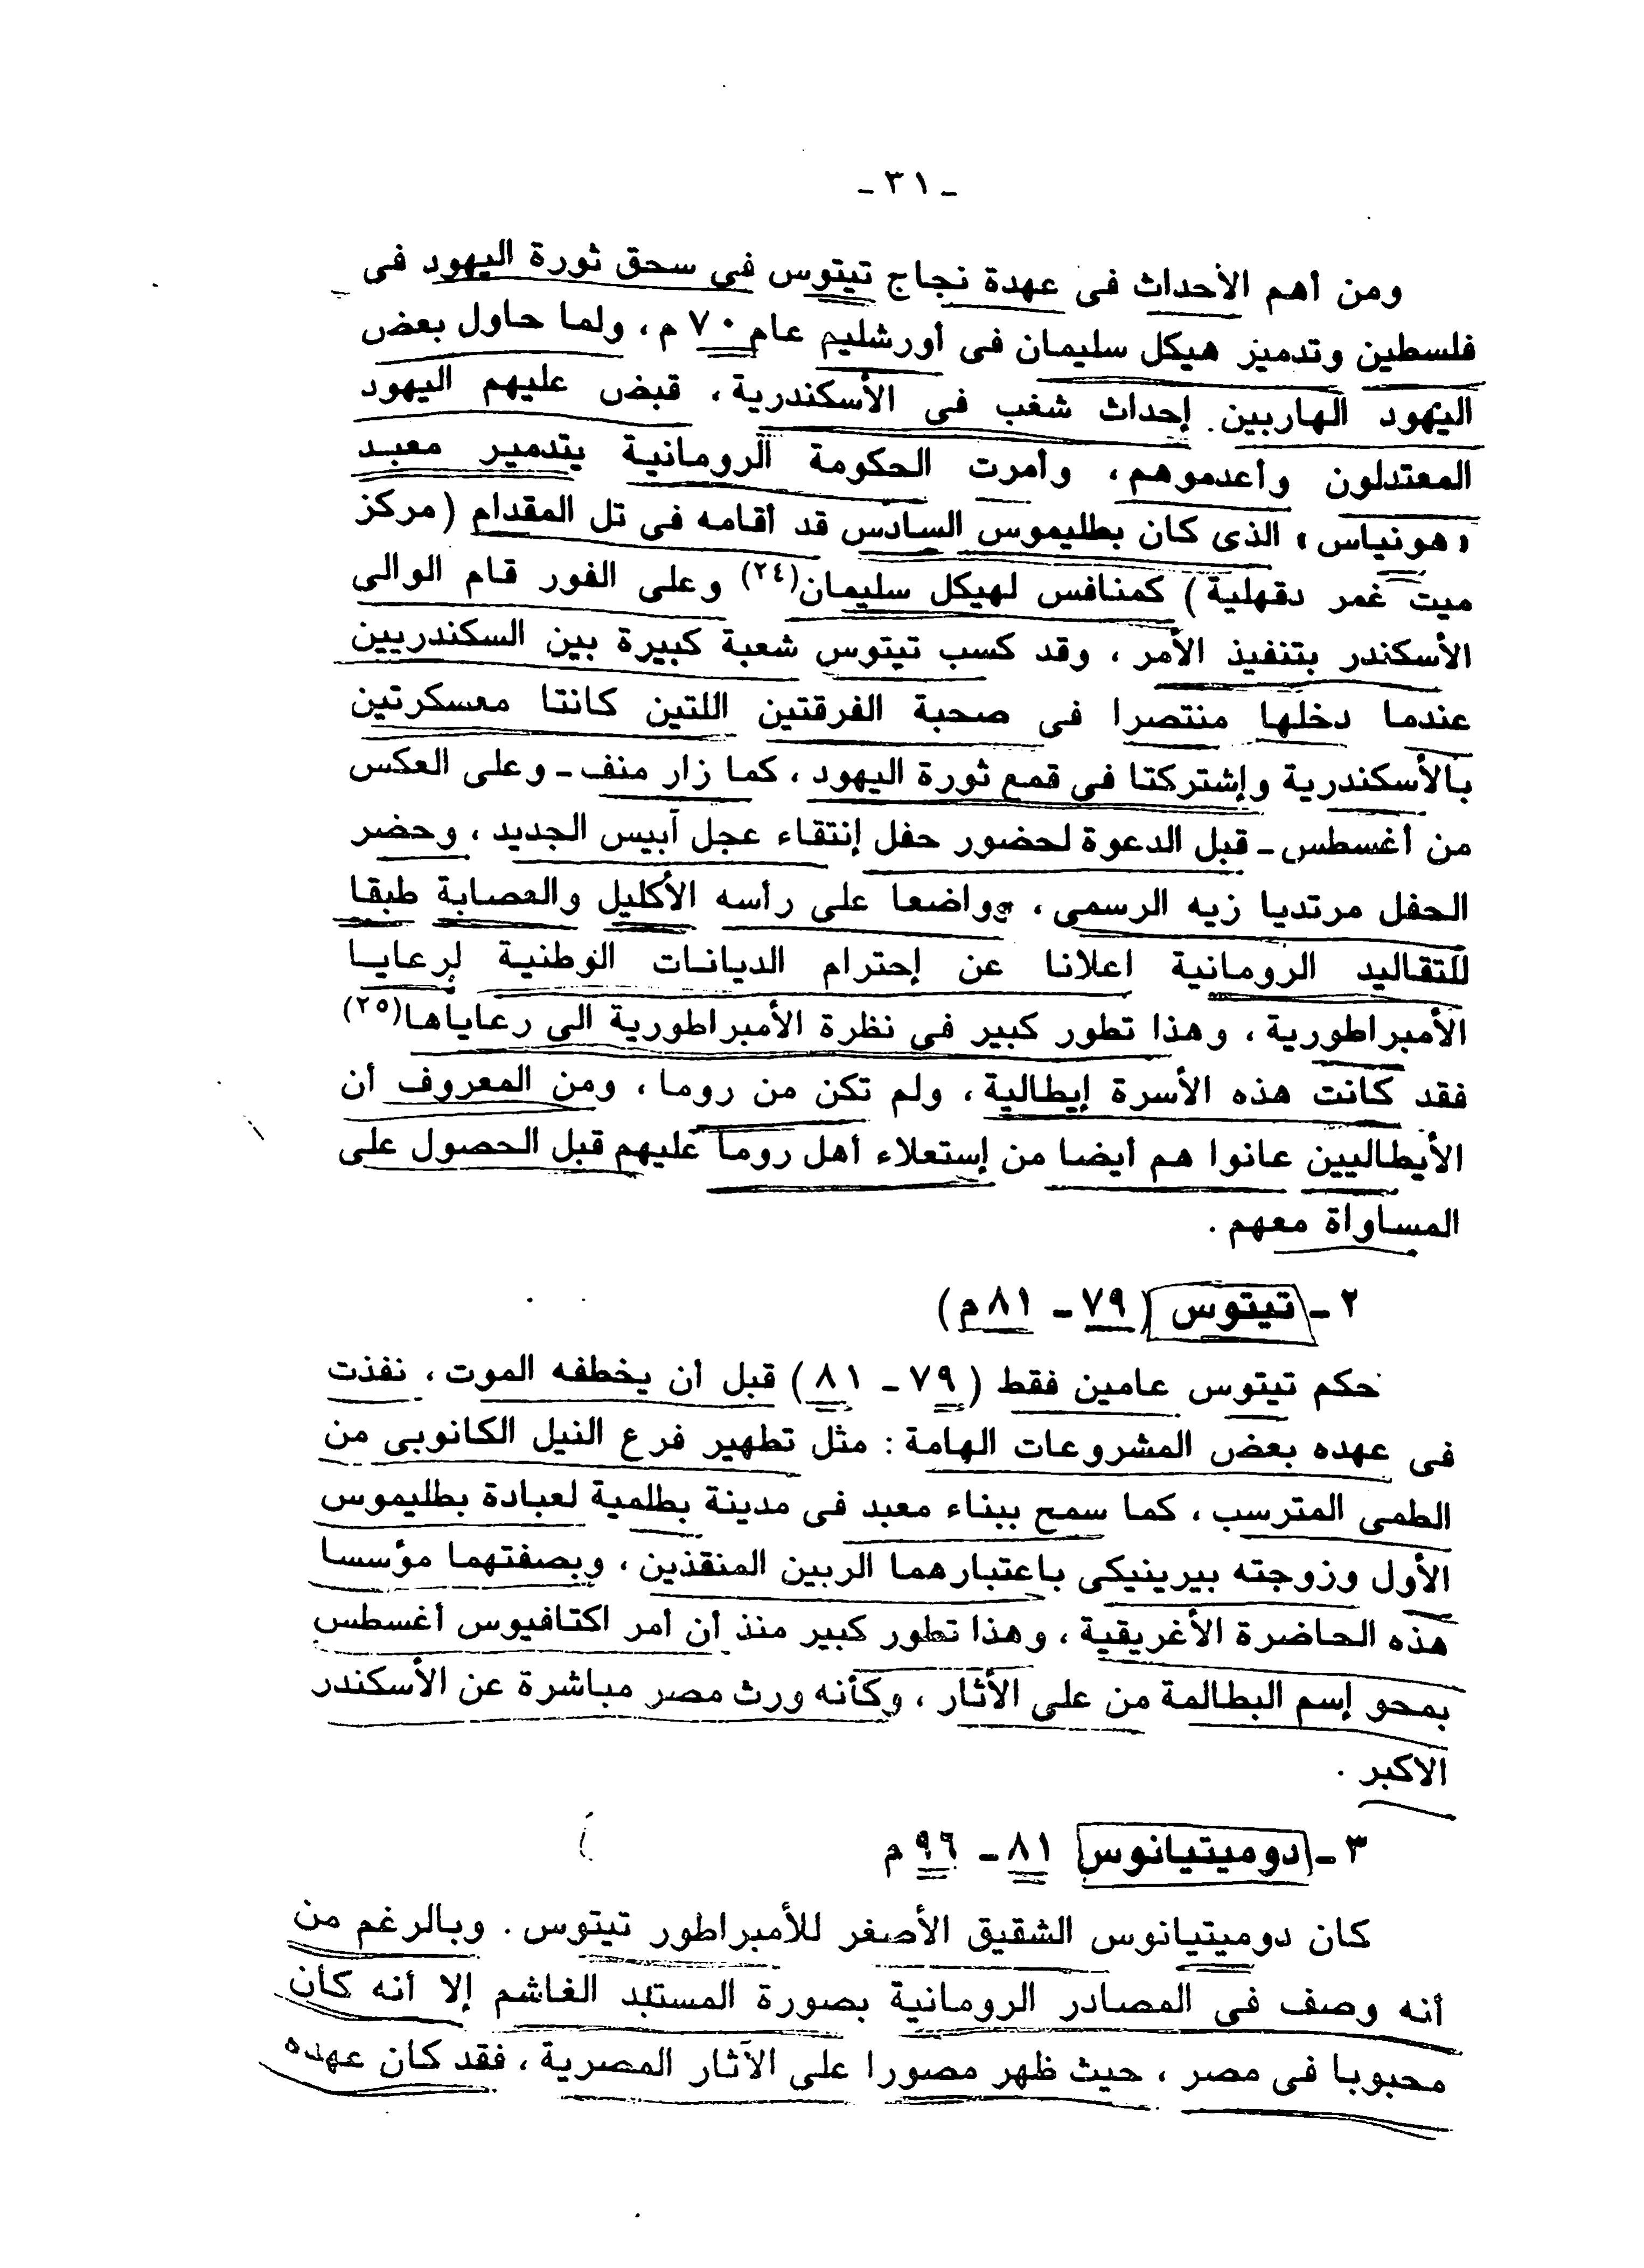 ـ ٣١ ـ
ومن أهم الأحداث فى عهدة نجاح تيتوس فى سحق ثورة اليهود فى
فلسطين وتدميز هيكل سليمان فى أورشليم عام ٧٠ م ، ولما حاول بعض
اليهود الهاربين إحداث شغب فى الأسكندرية ، قبض عليهم اليهود
المعتدلون وأعدموهم ، وأمرت الحكومة الرومانية بتدمير معبد
« هونياس » الذى كان بطليموس السادس قد أقامه فى تل المقدام ( مركز
ميت غمر دقهلية ) كمنافس لهيكل سليمان(٢٤) وعلى الفور قام الوالى
الأسكندر بتنفيذ الأمر ، وقد كسب تيتوس شعبة كبيرة بين السكندريين
عندما دخلها منتصرا فى صحبة الفرقتين اللتين كانتا معسكرتين
بالأسكندرية وإشتركتا فى قمع ثورة اليهود ، كما زار منف ـ وعلى العكس
من أغسطس ـ قبل الدعوة لحضور حفل إنتقاء عجل آبيس الجديد ، وحضر
الحفل مرتديا زيه الرسمى ، وواضعا على رأسه الأكليل والعصابة طبقا
للتقاليد الرومانية اعلانا عن إحترام الديانات الوطنية لرعايا
الأمبراطورية ، وهذا تطور كبير فى نظرة الأمبراطورية الى رعاياها(٢٥)
فقد كانت هذه الأسرة إيطالية ، ولم تكن من روما ، ومن المعروف أن
الأيطاليين عانوا هم أيضا من إستعلاء أهل روما عليهم قبل الحصول على
المساواة معهم .
٢ ـ تيتوس ( ٧٩ ـ ٨١ م )
حكم تيتوس عامين فقط ( ٧٩ ـ ٨١ ) قبل أن يخطفه الموت ، نفذت
فى عهده بعض المشروعات الهامة : مثل تطهير فرع النيل الكانوبى من
الطمى المترسب ، كما سمح ببناء معبد فى مدينة بطلمية لعبادة بطليموس
الأول وزوجته بيرينيكى باعتبارهما الربين المنقذين ، وبصفتهما مؤسسا
هذه الحاضرة الأغريقية ، وهذا تطور كبير منذ أن أمر اكتافيوس أغسطس
بمحو إسم البطالمة من على الأثار ، وكأنه ورث مصر مباشرة عن الأسكندر
الاكبر .
٣ ـ دوميتيانوس ٨١ ـ ٩٦ م
كان دوميتيانوس الشقيق الأصغر للأمبراطور تيتوس . وبالرغم من
أنه وصف فى المصادر الرومانية بصورة المستبد الغاشم إلا أنه كان
محبوبا فى مصر ، حيث ظهر مصورا على الآثار المصرية ، فقد كان عهده